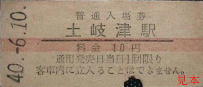 普通入場券
土岐津駅
料金10円
通用発売当日1回限り
客車内に立入ることはできません。
40.-6.10.
見本